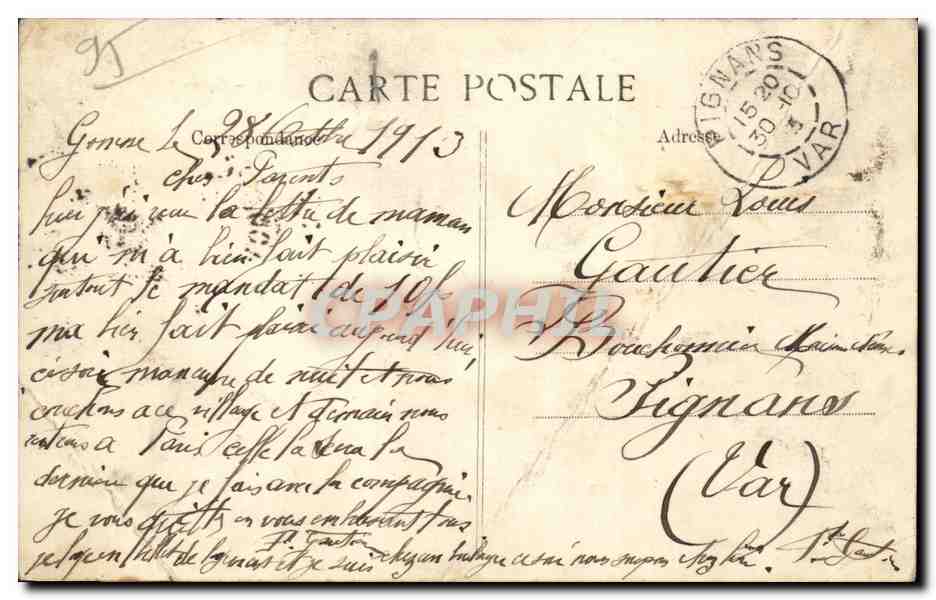 95
CARTE POSTALE
PIGNANS
15 20
30 -10
13
VAR
Correspondance
Adresse
Gonesse le 28 Octobre 1913
chers Parents
hier j'ai reçu la lettre de maman
qui m'a bien fait plaisir
surtout le mandat de 10f
ma bien fait plaisir aujourd'hui
ce soir manœuvre de nuit et nous
couchons a ce village et demain nous
rentrons a Paris celle la sera la
dernière que je fais avec la compagnie
je vous quitte en vous embrassant tous
Gautier
je suis chez un
Monsieur Louis
Gautier
Bouchonnier
Pignans
(Var)
CPAPHIL